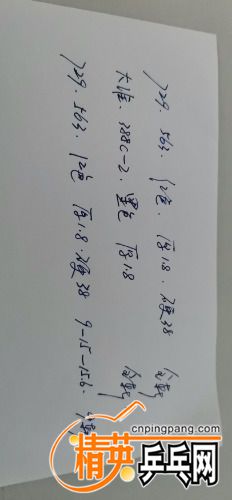 729. 563. 红色. 厚1.8. 硬38
大维. 388C-2. 黑色 厚1.8
729. 563. 红色 厚1.8. 硬38 9-15-156.
cnpingpang.com
精英乒乓网